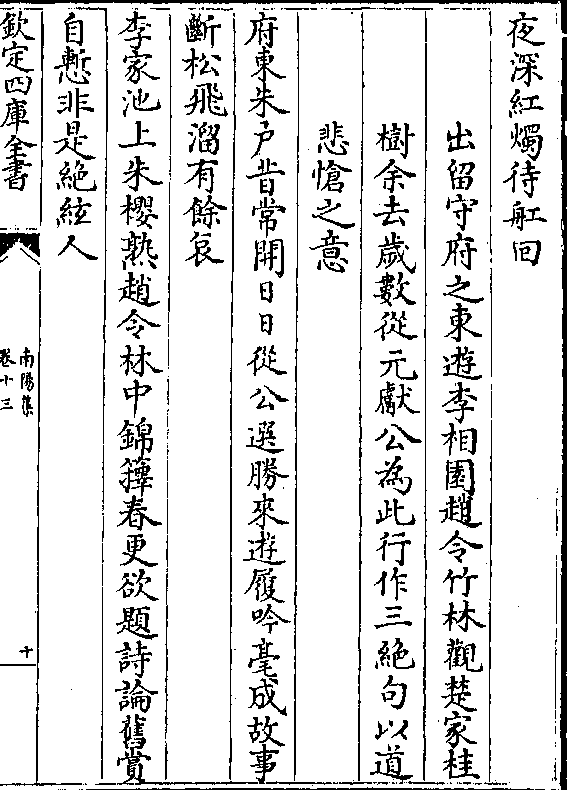 夜深紅燭待舡回
出留守府之東遊李相園趙令竹林觀楚家桂
樹余去歲數從元獻公為此行作三絶句以道
悲愴之意
府東朱户昔常開日日從公選勝來遊履吟毫成故事
斷松飛溜有餘哀
李家池上朱櫻熟趙令林中錦籜春更欲題詩論舊賞
自慙非是絶絃人
欽定四庫全書
南陽集
卷十三
十